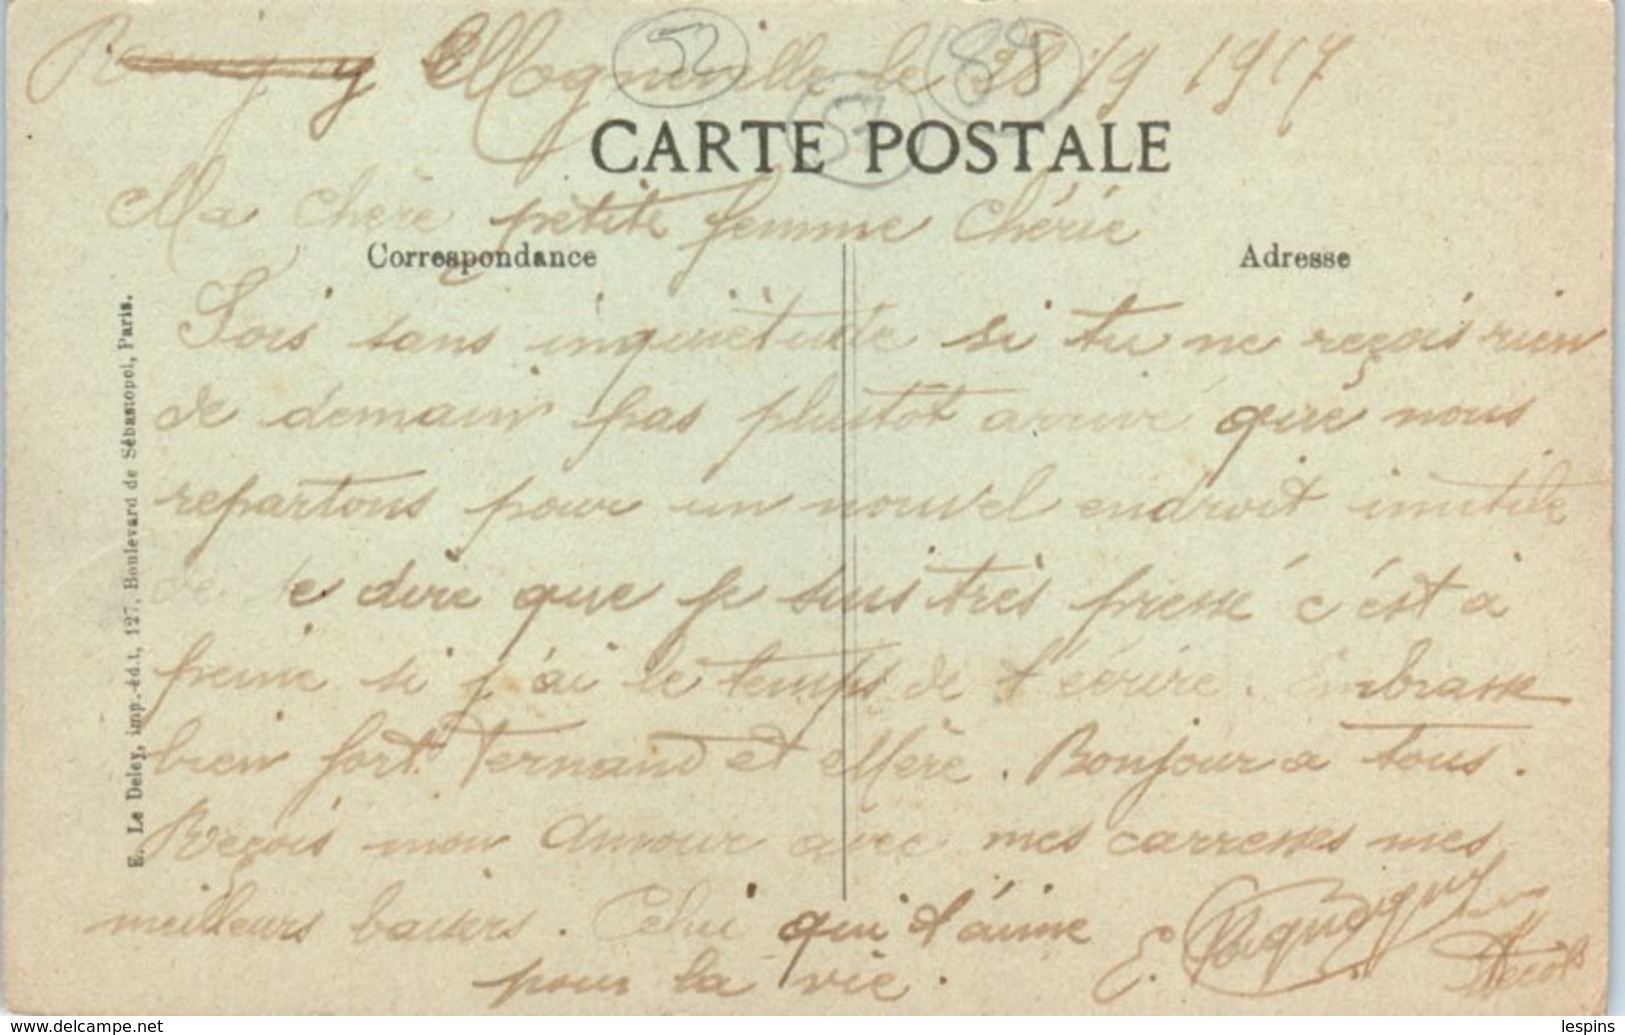 Magneville le 28/9 1917
52
CARTE POSTALE
Ma chère petite femme Chérie
Correspondance
Adresse
Sois sans inquiètude si tu ne reçois rien
de demain pas plustôt arrivé que nous
repartons pour un nouvel endroit inutile
de te dire que je suis très pressé c'est à
peine si j'ai le temps de t'écrire. Embrasse
bien fort Fernand et Mère. Bonjour a tous.
Reçois mon Amour avec mes carresses mes
meilleurs baisers. Celui qui t'aime
pour la vie.
E.
E. Le Deley, imp.-éd.t, 127, Boulevard de Sébastopol, Paris.
www.delcampe.net
lespins